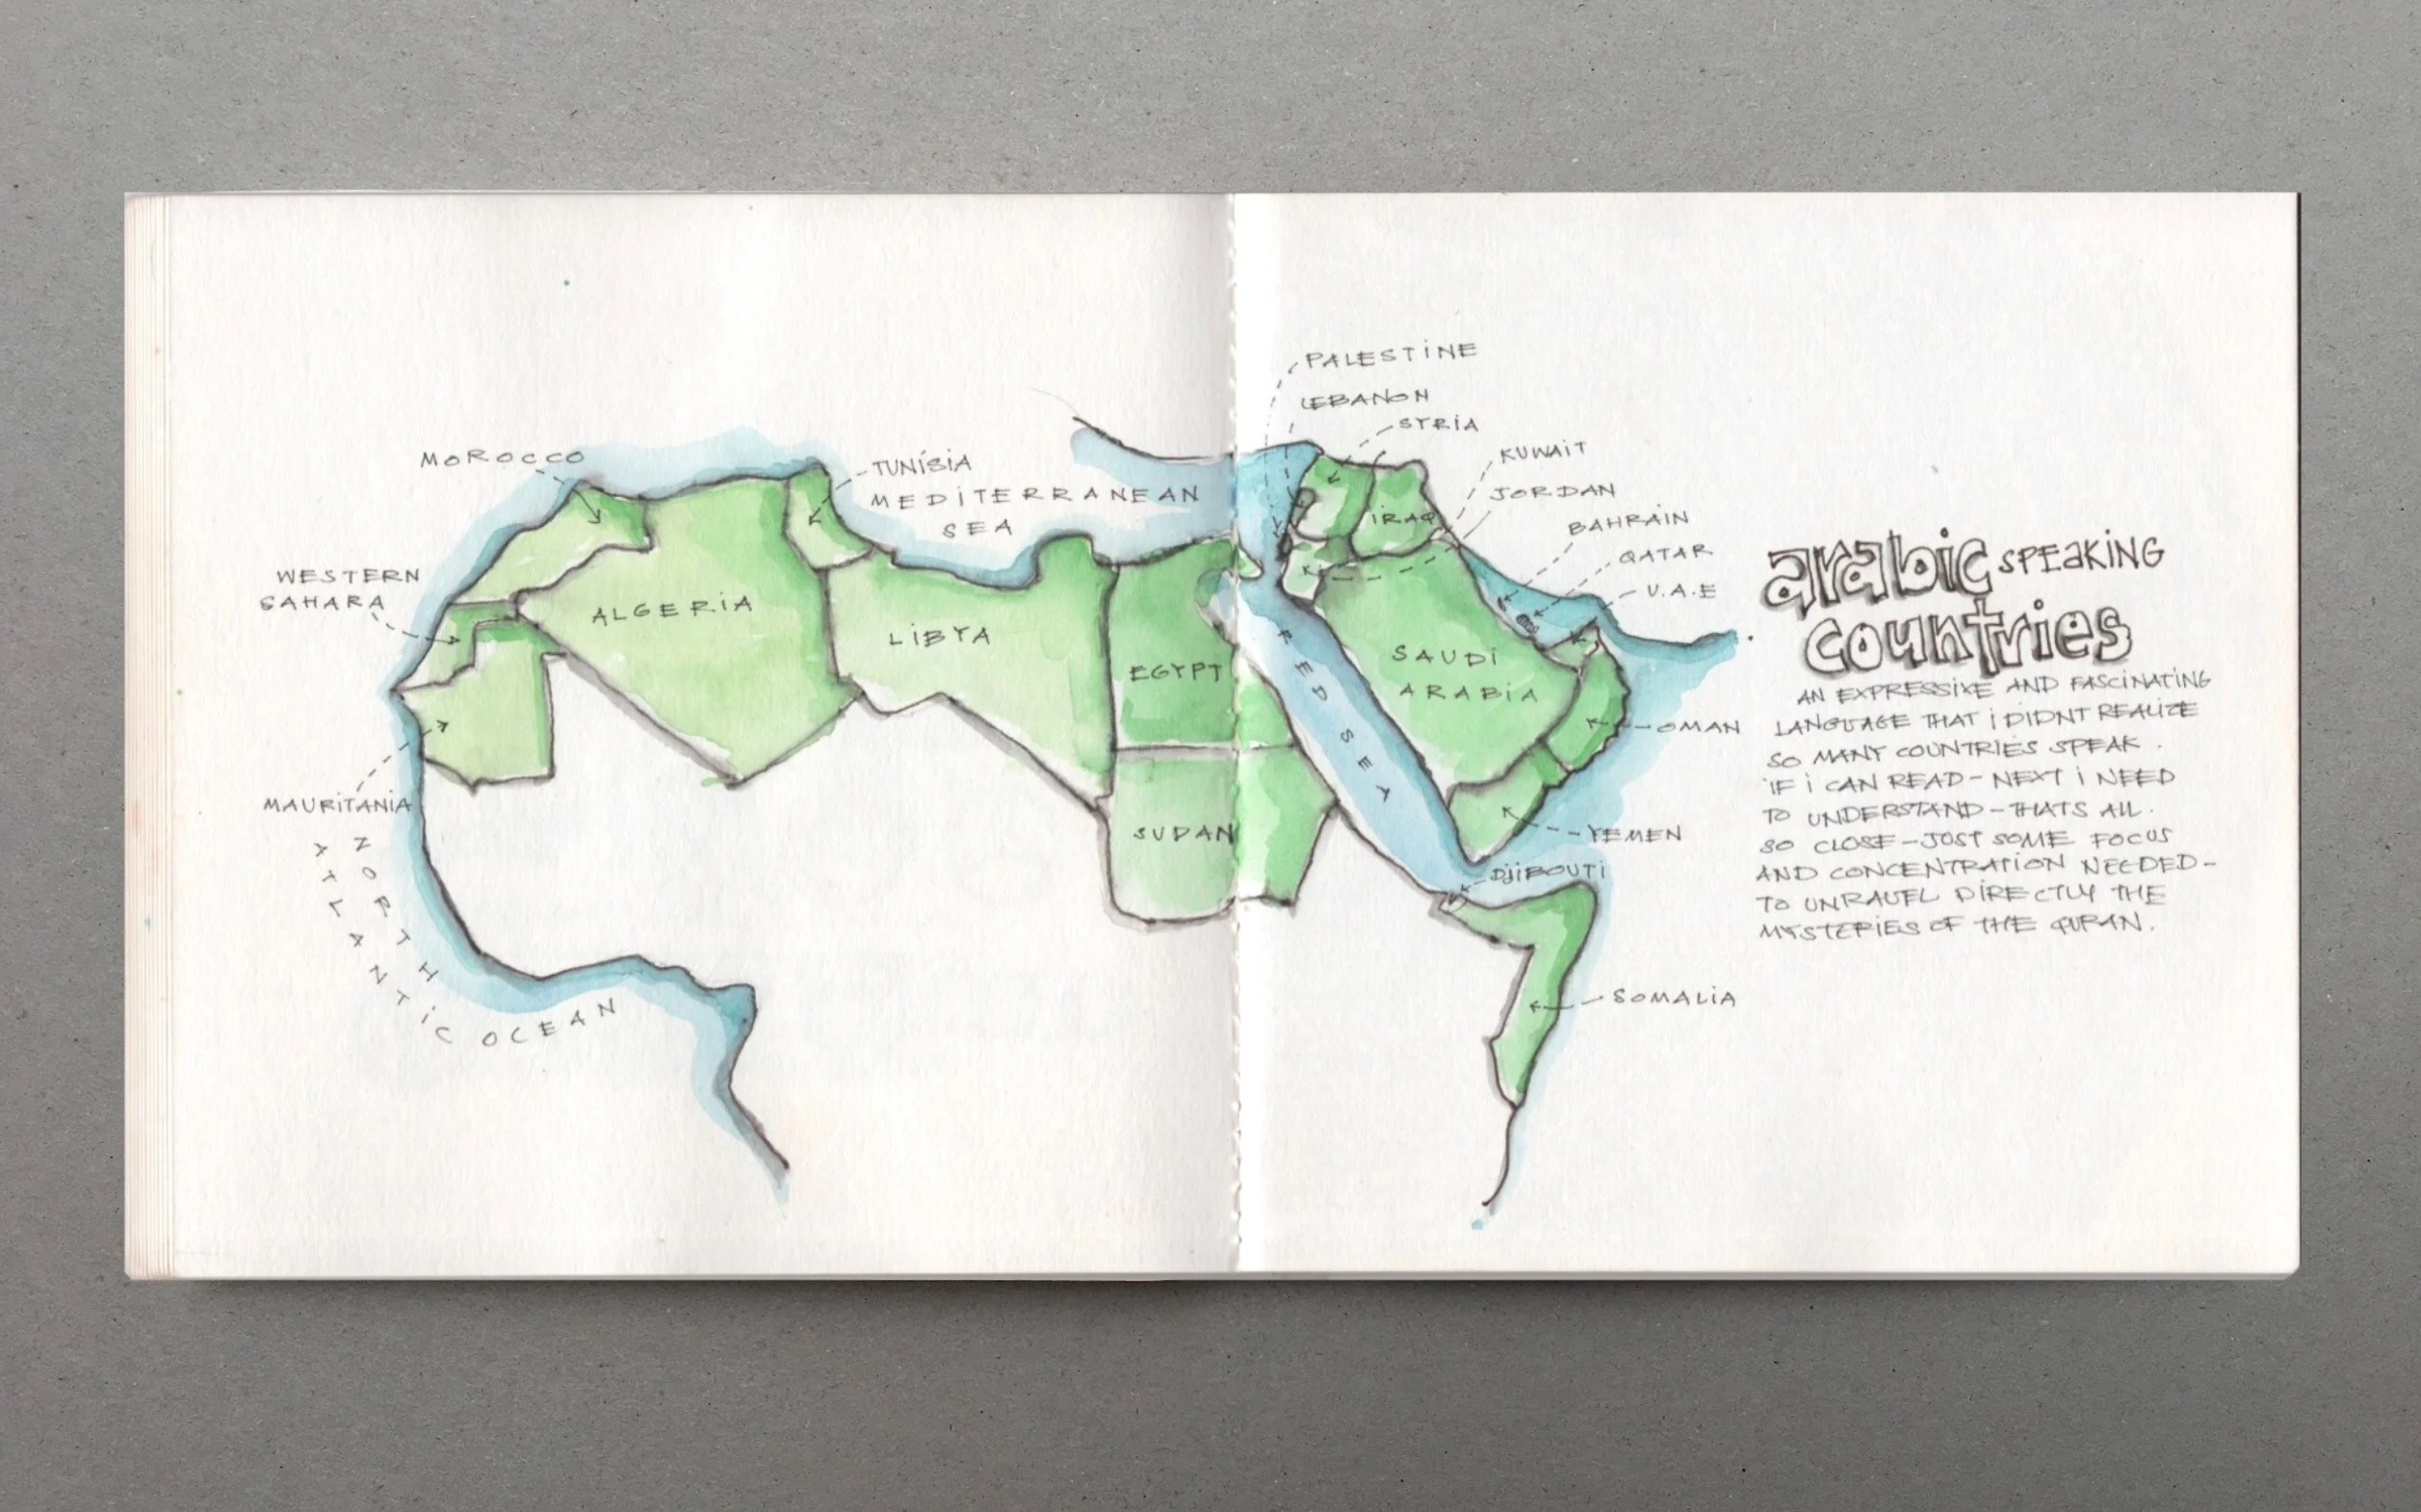 PALESTINE
LEBANON
SYRIA
MOROCCO
KUWAIT
TUNISIA
JORDAN
MEDITERRANEAN
SEA
IRAQ
BAHRAIN
QATAR
U.A.E
WESTERN
SAHARA
ALGERIA
LIBYA
EGYPT
RED SEA
SAUDI
ARABIA
OMAN
MAURITANIA
SUDAN
YEMEN
DJIBOUTI
NORTH
ATLANTIC OCEAN
SOMALIA
arabic SPEAKING
countries
AN EXPRESSIVE AND FASCINATING
LANGUAGE THAT I DIDNT REALIZE
SO MANY COUNTRIES SPEAK.
IF I CAN READ - NEXT I NEED
TO UNDERSTAND - THATS ALL.
SO CLOSE - JUST SOME FOCUS
AND CONCENTRATION NEEDED -
TO UNRAVEL DIRECTLY THE
MYSTERIES OF THE QURAN.